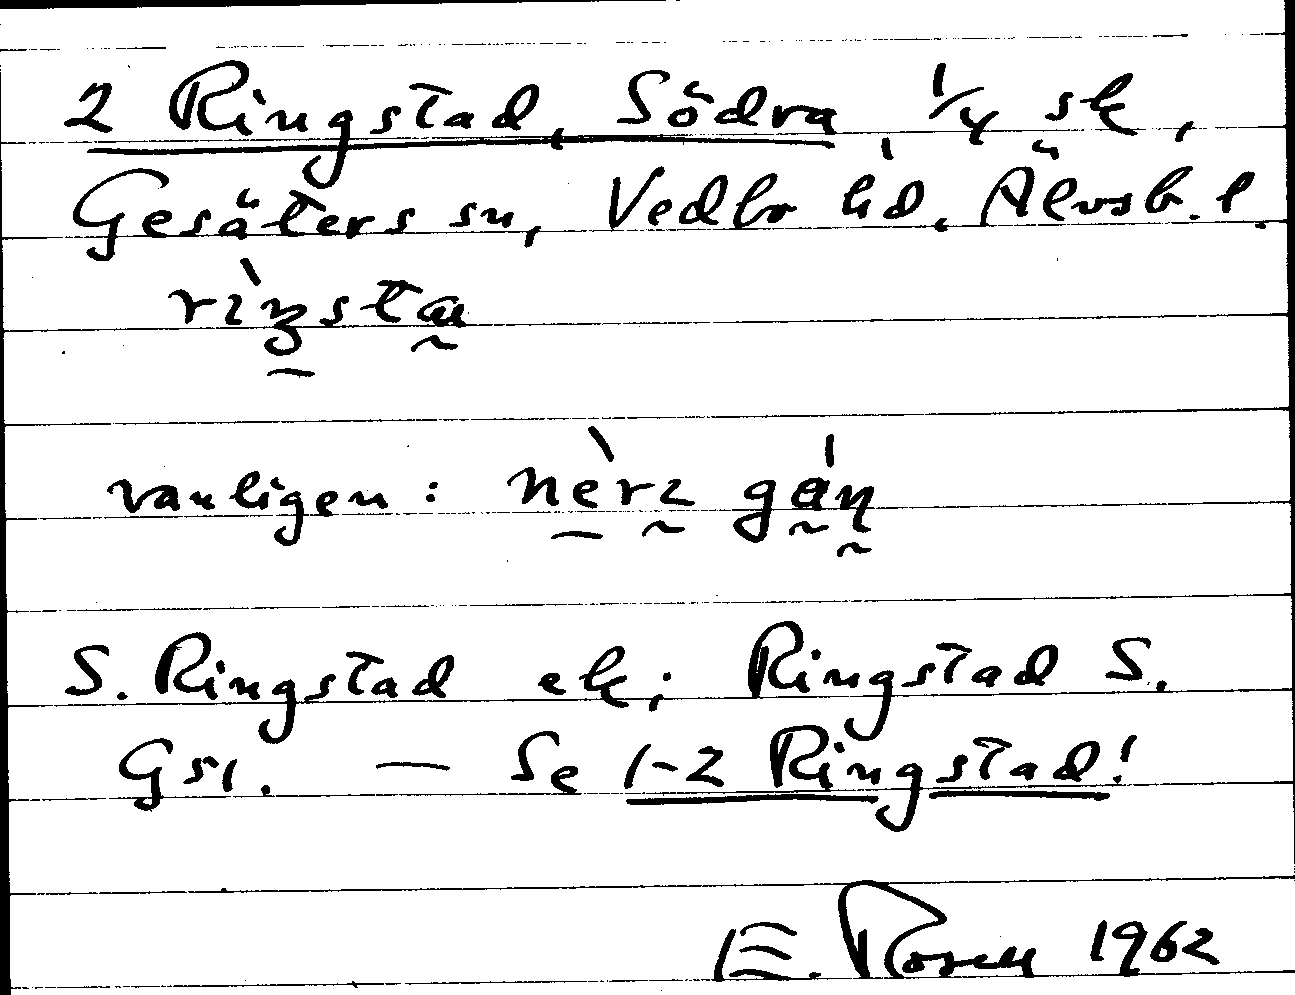 2 Ringstad, Södra, 1/4 sk,
Gesäters sn, Vedbo hd, Älvsb. l.
vanligen:
S. Ringstad ek; Ringstad S.
Gsl. — Se 1-2 Ringstad!
E. Rosell 1962